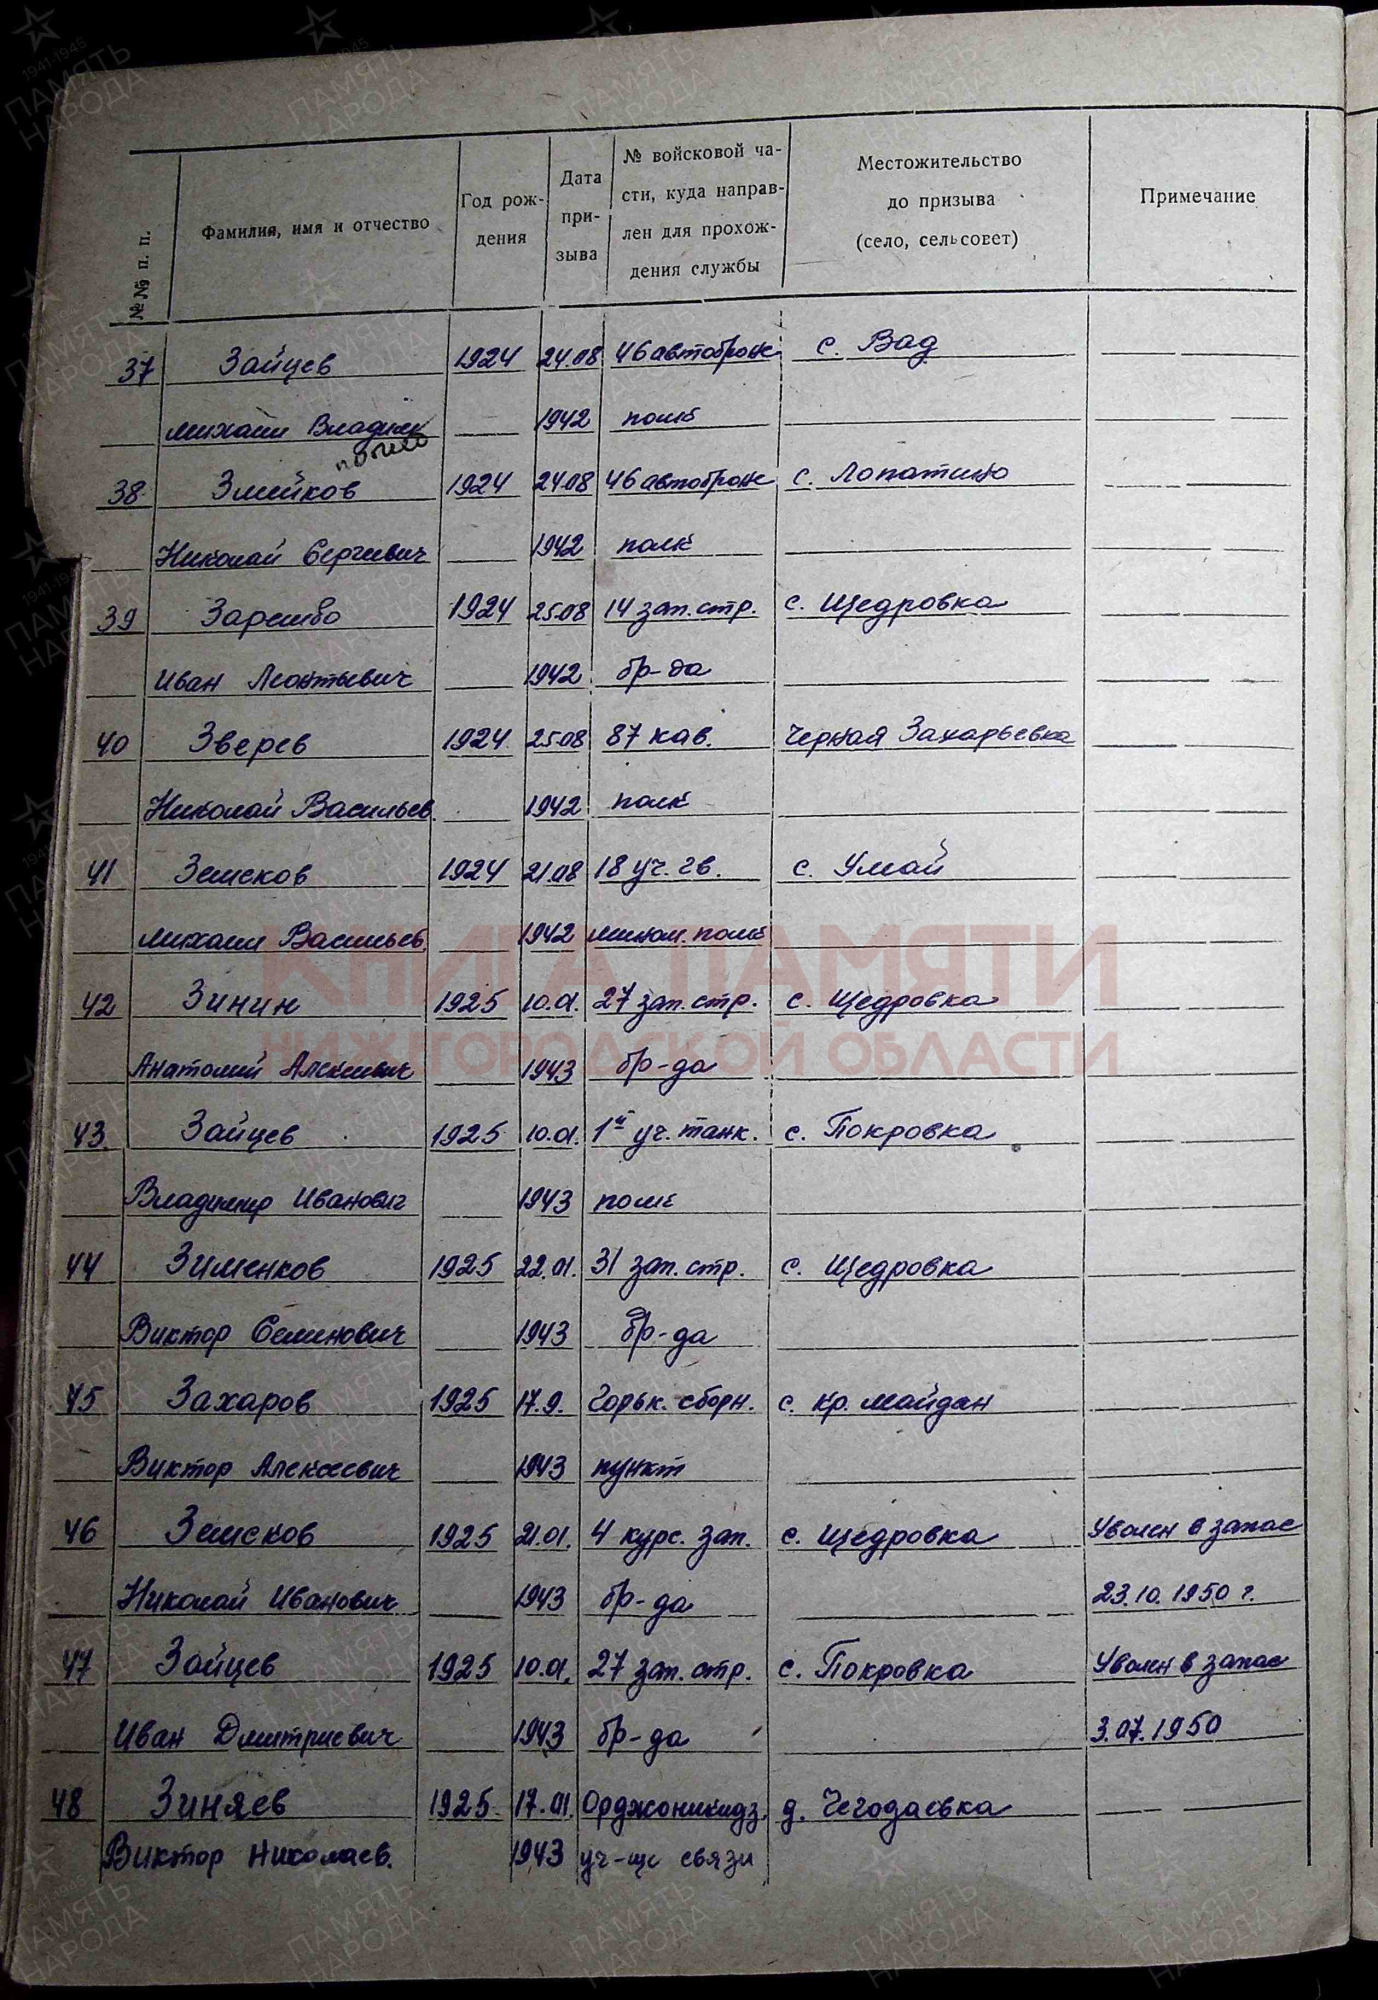 №№ п. п. Фамилия, имя и отчество Год рождения Дата призыва № войсковой части, куда направлен для прохождения службы Местожительство до призыва (село, сельсовет) Примечание
37 Зайцев 1924 24.08 46 автоброне с. Вад
Михаил Владим 1942 полк
38 Змейков 1924 24.08 46 автоброне с. Лопатино
Николай Сергеевич 1942 полк
39 1924 25.08 14 зап. стр. с. Щедровка
Иван Леонтьевич 1942 бр-да
40 Зверев 1924 25.08 87 кав. Черная Захарьевка
Николай Васильев. 1942 полк
41 Земсков 1924 21.08 18 уч. гв. с. Умай
Михаил Васильев. 1942 мином. полк
42 Зинин 1925 10.01. 27 зап. стр. с. Щедровка
Анатолий Алексеевич 1943 бр-да
43. Зайцев 1925 10.01. 1й уч. танк. с. Покровка
Владимир Иванович 1943 полк
44 Зименков 1925 22.01. 31 зап. стр. с. Щедровка
Виктор Семенович 1943 бр-да
45 Захаров 1925 17.9. Горьк. сборн. с. Кр. Майдан
Виктор Алексеевич 1943 пункт
46 Земсков 1925 21.01. 4 курс. зап. с. Щедровка Уволен в запас
Николай Иванович 1943 бр-да 23.10.1950 г.
47 Зайцев 1925 10.01. 27 зап. стр. с. Покровка Уволен в запас
Иван Дмитриевич 1943 бр-да 3.07.1950
48 Зиняев 1925 17.01. Орджоникидз. д. Чегодаевка
Виктор Николаев. 1943 уч-ще связи
КНИГА ПАМЯТИ
НИЖЕГОРОДСКОЙ ОБЛАСТИ
1941-1945
ПАМЯТЬ
НАРОДА